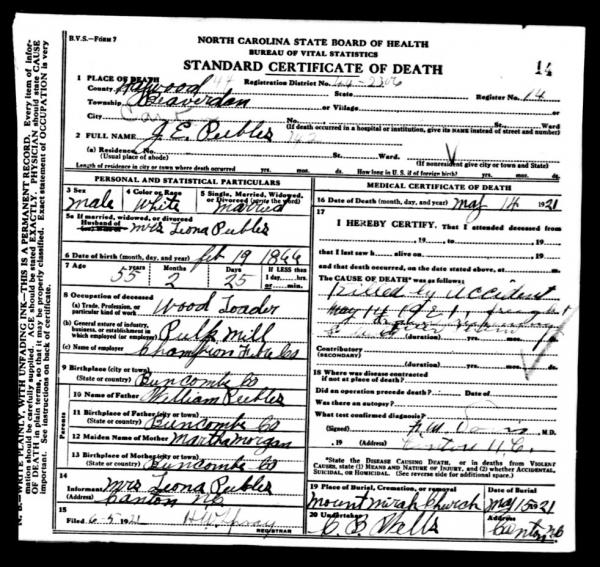 B.V.S.—FORM 7
NORTH CAROLINA STATE BOARD OF HEALTH
BUREAU OF VITAL STATISTICS
STANDARD CERTIFICATE OF DEATH
14
1 PLACE OF DEATH
County Haywood 44 Registration District No. 44-2306
State Register No. 14
Township Beaverdam or Village
City No. St. Ward
(If death occurred in a hospital or institution, give its NAME instead of street and number)
2 FULL NAME J. E. Peebler
(a) Residence. No. St. Ward.
(Usual place of abode) (If nonresident give city or town and State)
Length of residence in city or town where death occurred yrs. mos. ds. How long in U. S. if of foreign birth? yrs. mos. ds.
PERSONAL AND STATISTICAL PARTICULARS
3 Sex 4 Color or Race 5 Single, Married, Widowed, or Divorced (write the word)
male White married
5a If married, widowed, or divorced
Husband of
(or) Wife of Mrs Leona Peebler
6 Date of birth (month, day, and year) Feb 19 1866
7 Age years Months Days IF LESS than
55 2 25 1 day, hrs.
or min.
8 Occupation of deceased
(a) Trade, Profession, or particular kind of work Wood Loader
(b) General nature of industry, business, or establishment in which employed (or employer) Pulp Mill
(c) Name of employer Champion Fibre Co
9 Birthplace (city or town)
(State or country) Buncombe Co
Parents
10 Name of Father William Peebler
11 Birthplace of Father (city or town)
(State or country) Buncombe Co
12 Maiden Name of Mother Martha Morgan
13 Birthplace of Mother (city or town)
(State or country) Buncombe Co
14
Informant Mrs Leona Peebler
(Address) Canton NC
15
Filed 6-5 1921
REGISTRAR
MEDICAL CERTIFICATE OF DEATH
16 Date of Death (month, day, and year) May 14 1921
17
I HEREBY CERTIFY, That I attended deceased
from , 19 , to , 19
that I last saw h alive on , 19
and that death occurred, on the date stated above, at m.
The CAUSE OF DEATH* was as follows:
Killed by accident
May 14 1921, freight
(duration) yrs. mos. ds.
Contributory
(SECONDARY)
(duration) yrs. mos. ds.
18 Where was disease contracted
if not at place of death?
Did an operation precede death? Date of
Was there an autopsy?
What test confirmed diagnosis?
(Signed) M.D.
, 19 (Address) Canton N.C.
*State the DISEASE CAUSING DEATH, or in deaths from VIOLENT CAUSES, state (1) MEANS AND NATURE OF INJURY, and (2) whether ACCIDENTAL, SUICIDAL, or HOMICIDAL. (See reverse side for additional space.)
19 Place of Burial, Cremation, or removal Date of Burial
Mount Church May 15 1921
20 Undertaker Address
C. B. Wells Canton NC
N. B.—WRITE PLAINLY, WITH UNFADING INK—THIS IS A PERMANENT RECORD. Every item of information should be carefully supplied. AGE should be stated EXACTLY. PHYSICIAN should state CAUSE OF DEATH in plain terms, so that it may be properly classified. Exact statement of OCCUPATION is very important. See instructions on back of certificate.